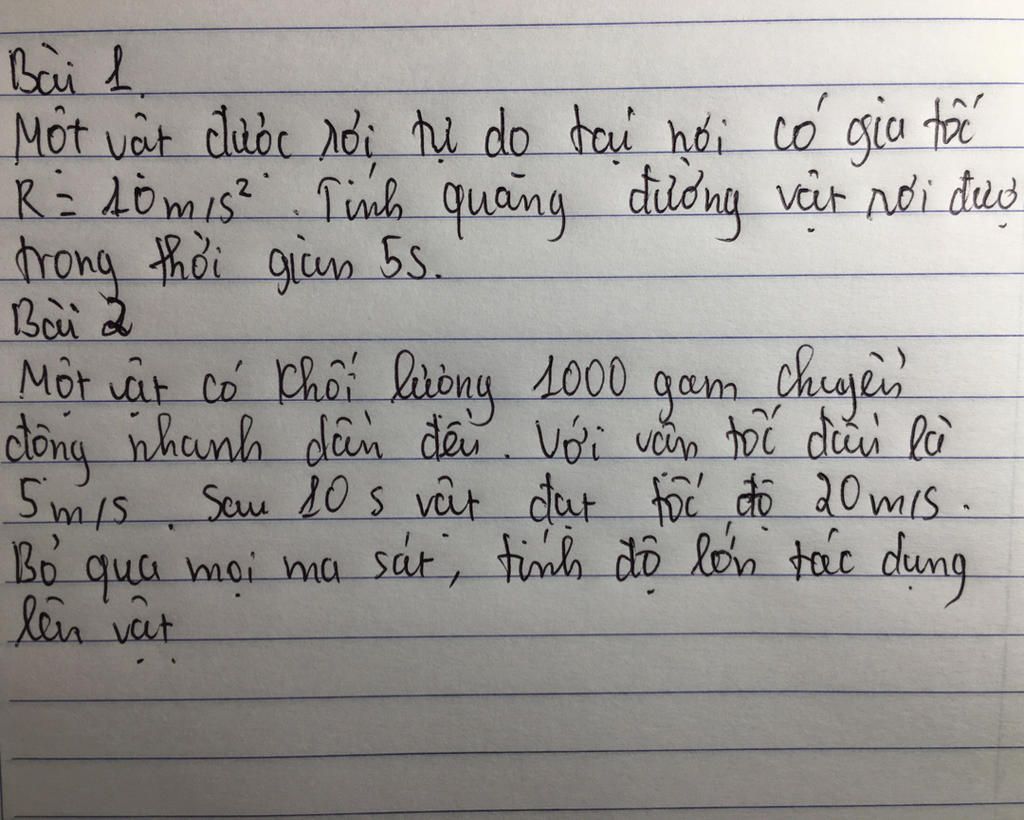 Bài 1.
Một vật được rơi tự do tại nơi có gia tốc
R = 10m/s². Tính quãng đường vật rơi đượ
trong thời gian 5s.
Bài 2
Một vật có khối lượng 1000 gam chuyển
động nhanh dần đều. Với vận tốc đầu là
5m/s. Sau 10 s vật đạt tốc độ 20m/s.
Bỏ qua mọi ma sát, tính độ lớn tác dụng
lên vật